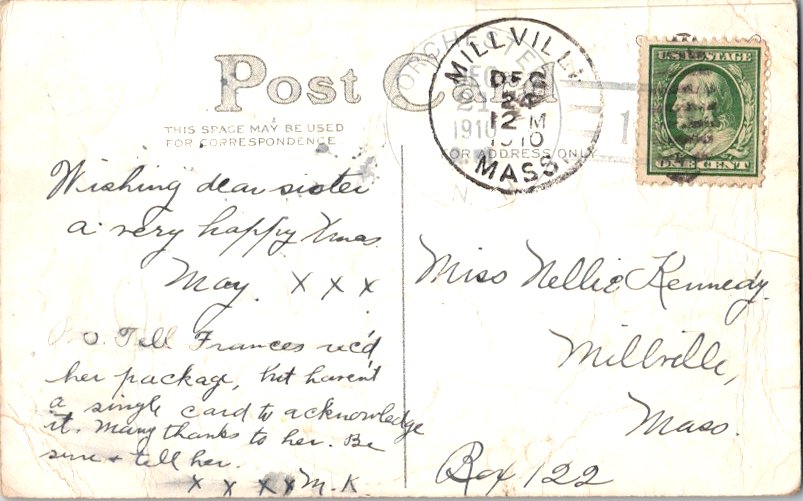 Post Card
THIS SPACE MAY BE USED
FOR CORRESPONDENCE
OR ADDRESS ONLY
MILLVILLE
DEC
24
12 M
1910
MASS
DEC
1910
N.
U.S. POSTAGE
ONE CENT
Wishing dear sister
a very happy Xmas
May. X X X
Tell Frances rec'd
her package, but haven't
a single card to acknowledge
it. Many thanks to her. Be
sure & tell her.
X X X X M.K
Miss Nellie Kennedy.
Millville,
Mass.
Box 122